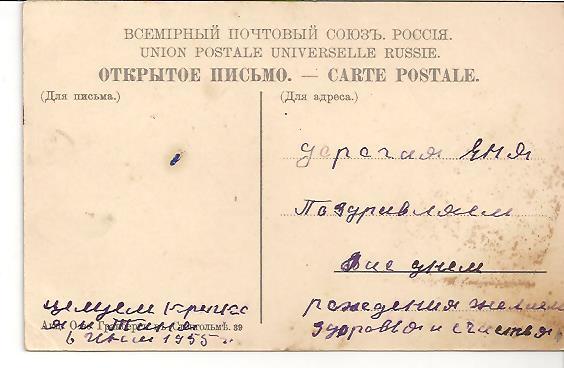 ВСЕМІРНЫЙ ПОЧТОВЫЙ СОЮЗЪ. РОССІЯ.
UNION POSTALE UNIVERSELLE RUSSIE.
ОТКРЫТОЕ ПИСЬМО. — CARTE POSTALE.
(Для письма.)
(Для адреса.)
дорогая
Поздравляем
Вас днем
рождения желаем
здоровья и счастья
целуем крепко
Стокгольмѣ. 39
6 1955 г.